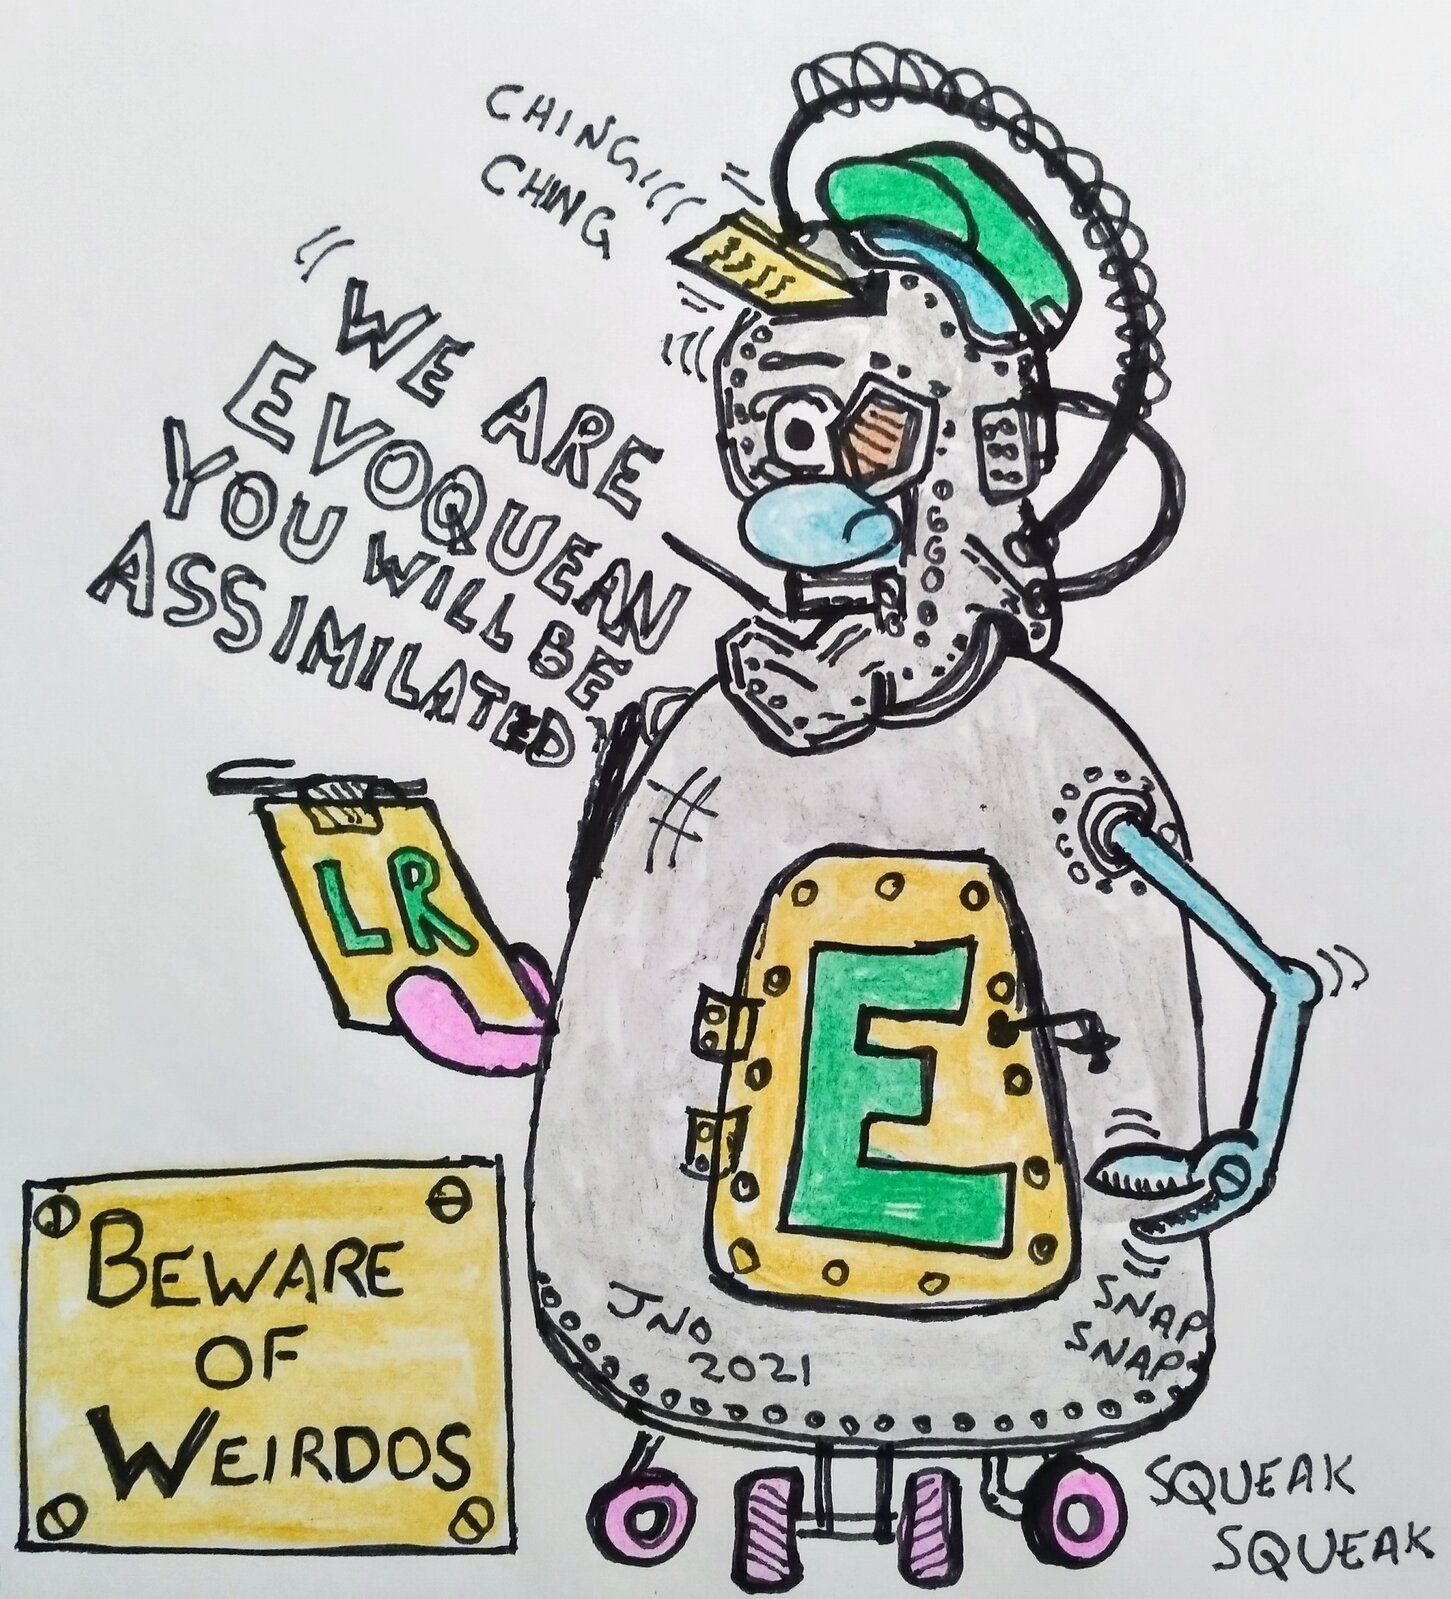 CHING
CHING
"WE ARE
EVOQUEAN
YOU WILL BE
ASSIMILATED"
LR
E
BEWARE
OF
WEIRDOS
JNO
2021
SNAP
SNAP
SQUEAK
SQUEAK